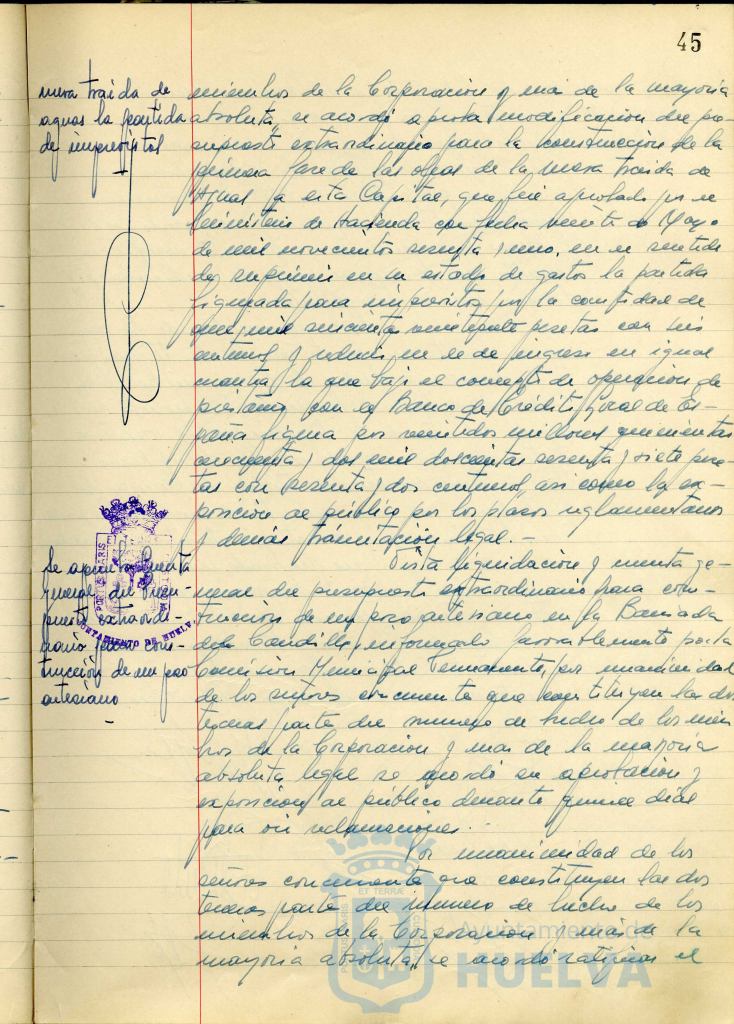 45
nueva traida de
aguas la partida
de imprevistos
miembros de la Corporación y más de la mayoría
absoluta, se acordó aprobar modificación del pre-
supuesto extraordinario para la construcción de la
primera fase de las obras de la nueva traida de
Aguas a esta Capital, que fué aprobado por el
Ministerio de Hacienda con fecha veinte de Mayo
de mil novecientos sesenta y uno, en el sentido
de suprimir en su estado de gastos la partida
figurada para imprevistos por la cantidad de
mil seiscientas pesetas con seis
centimos y reducir en el de ingresos en igual
cuantía la que bajo el concepto de operación de
préstamo con el Banco de Crédito Local de Es-
paña figura por veintidos millones quinientas
cincuenta y dos mil doscientas sesenta y siete pese-
tas con sesenta y dos centimos, así como la ex-
posición al público por los plazos reglamentarios
y demás tramitación legal.-
Se aprueba Cuenta
general del Presu-
puesto extraordi-
nario para cons-
trucción de un pozo
artesiano
PORTUS MARIS ET TERRAE
AYUNTAMIENTO DE HUELVA
Vista liquidación y cuenta ge-
neral del presupuesto extraordinario para cons-
trucción de un pozo artesiano en la Barriada
informada favorablemente por la
Comisión Municipal Permanente, por unanimidad
de los señores concurrentes que constituyen las dos
terceras partes del número de hecho de los miem-
bros de la Corporación y más de la mayoría
absoluta legal se acordó su aprobación y
exposición al público durante quince dias
para oir reclamaciones.-
Por unanimidad de los
señores concurrentes que constituyen las dos
terceras partes del número de hecho de los
miembros de la Corporación y más de la
mayoría absoluta, se acordó ratificar el
PORTUS MARIS ET TERRAE
Ayuntamiento de
HUELVA